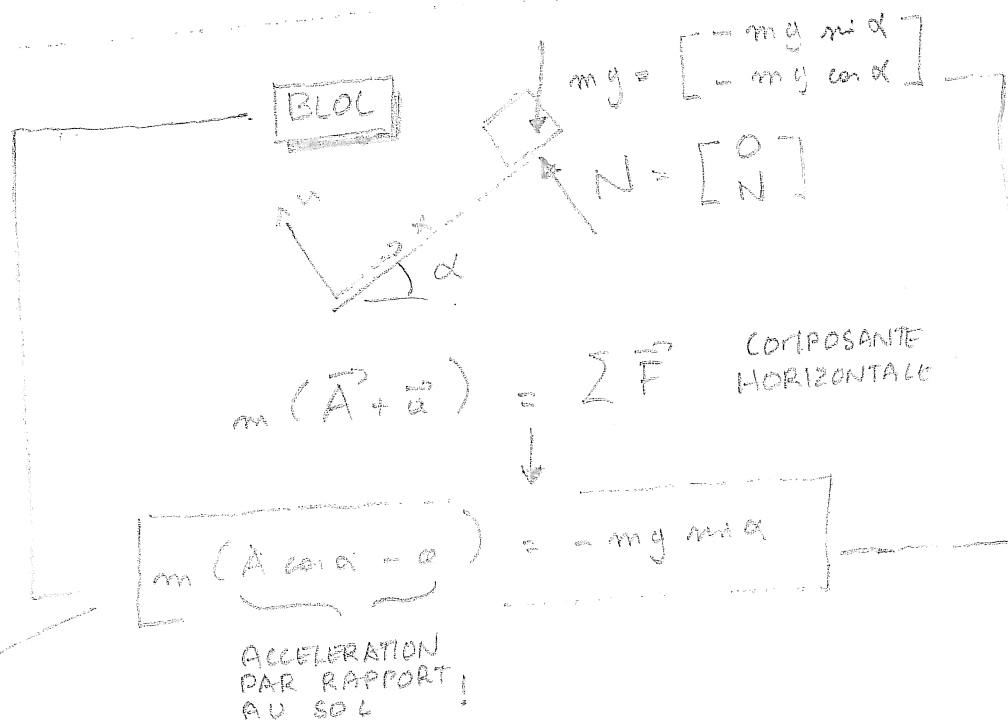 BLOC
mg = [ - mg sin α
- mg cos α ]
N = [ 0
N ]
x
α
m ( A⃗ + a⃗ ) = ∑ F⃗
COMPOSANTE
HORIZONTALE
m ( A cos α - a ) = - mg sin α
ACCELERATION
PAR RAPPORT
AU SOL !